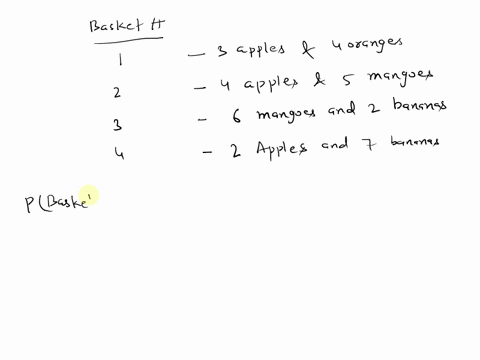 Basket #
1 - 3 apples & 4 oranges
2 - 4 apples & 5 mangoes
3 - 6 mangoes and 2 bananas
4 - 2 Apples and 7 bananas
P(Baske